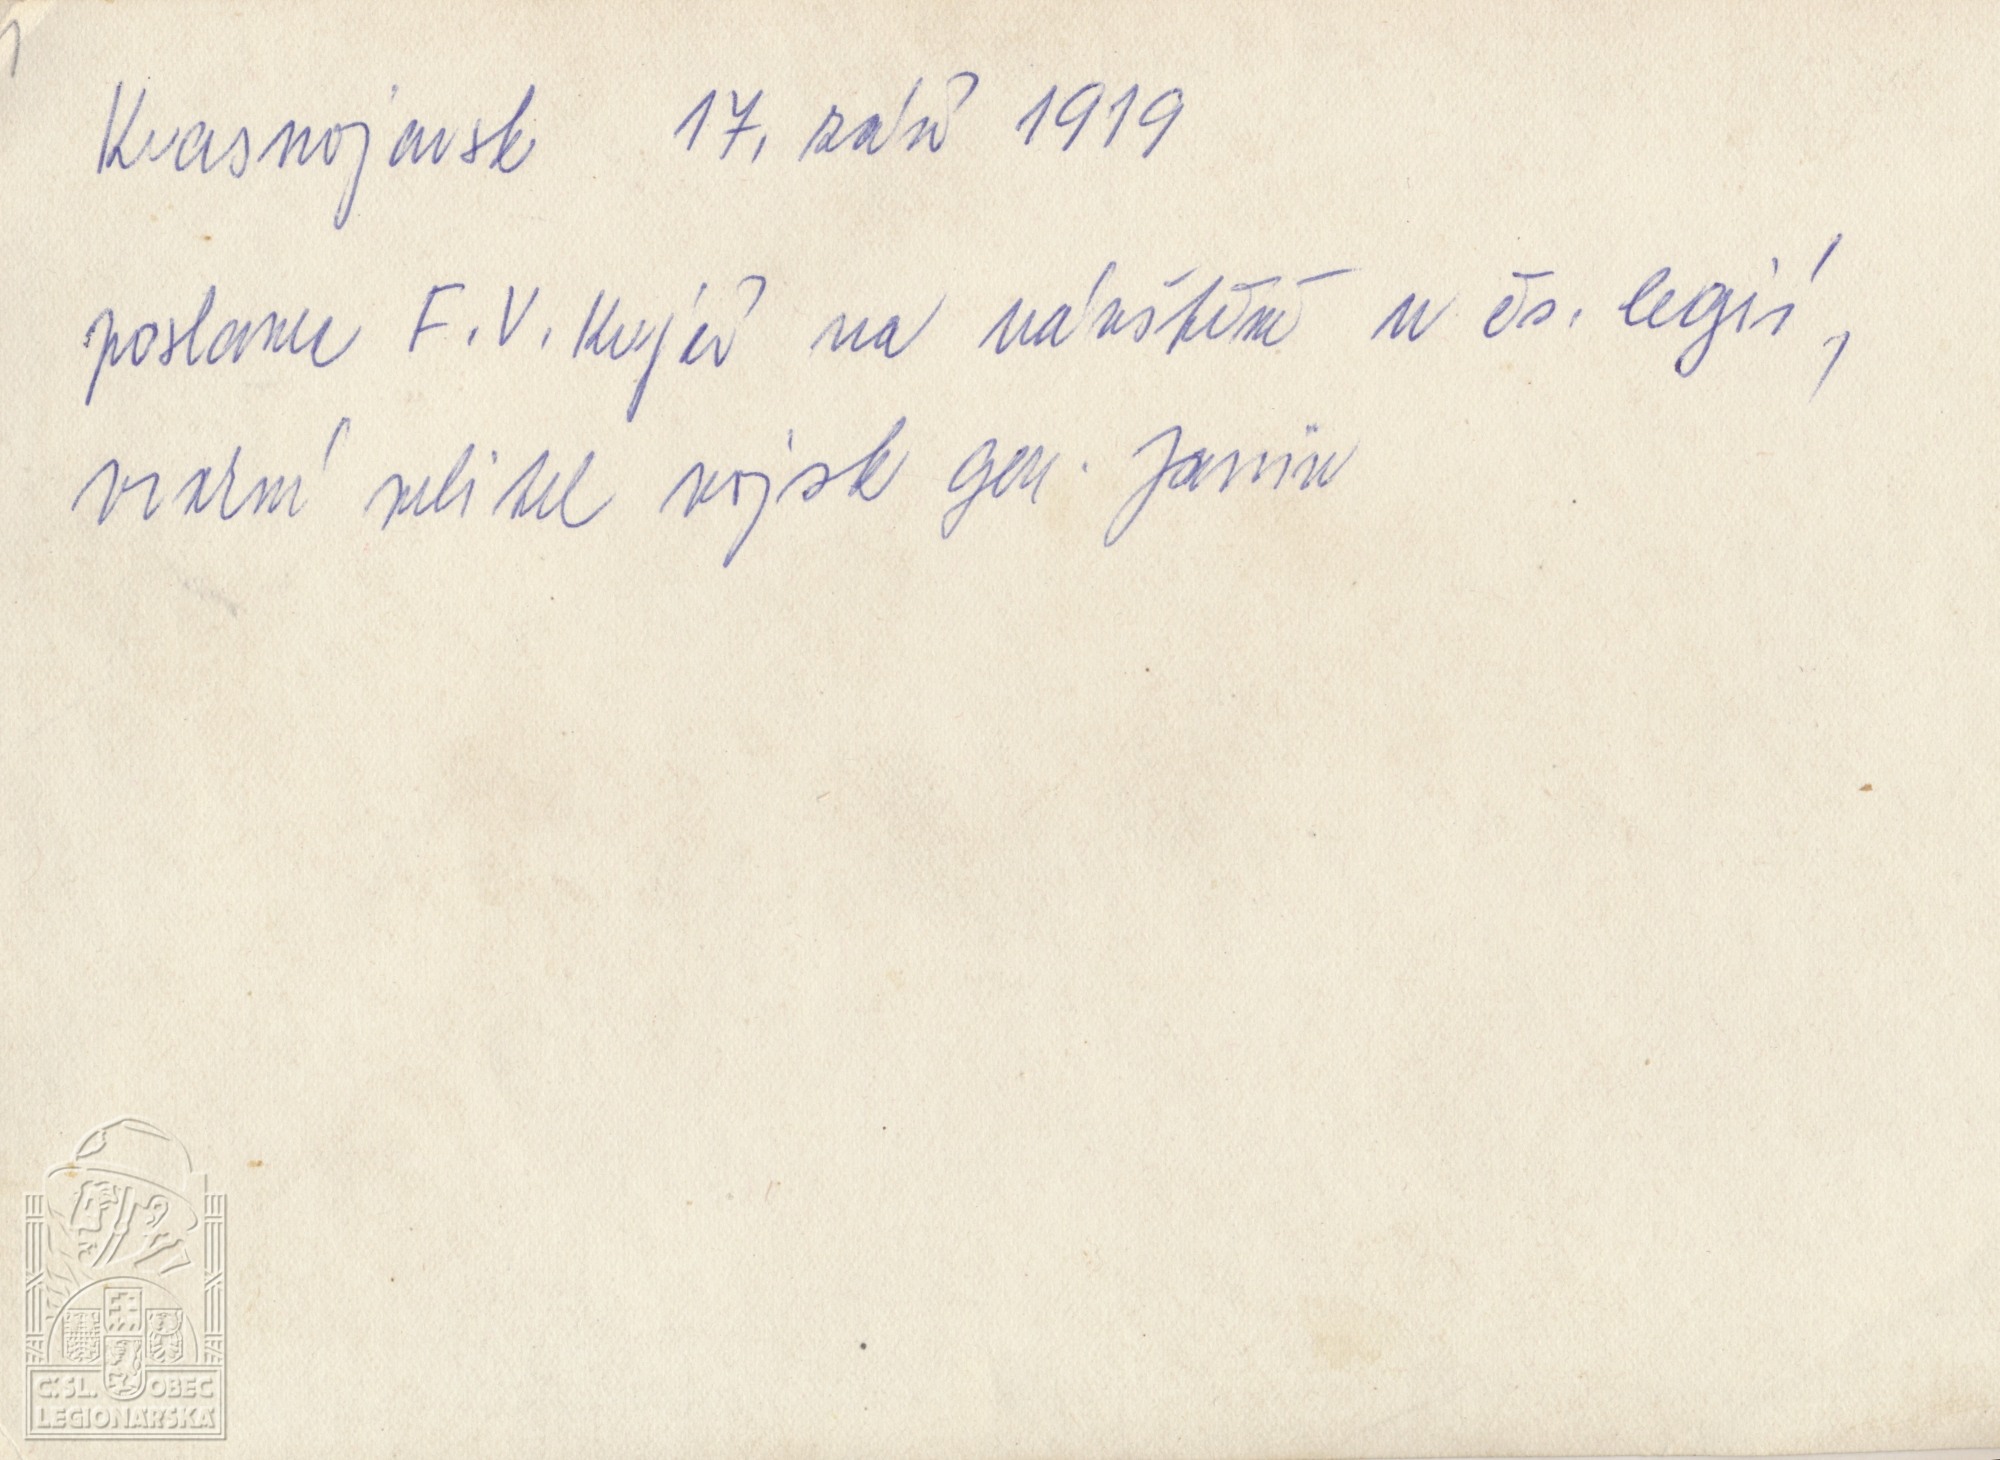 Krasnojarsk 17. září 1919
poslanec F. V. Krejčí na návštěvě u čs. legií,
vrchní velitel vojsk gen. Janin
Č. SL. OBEC
LEGIONÁŘSKÁ